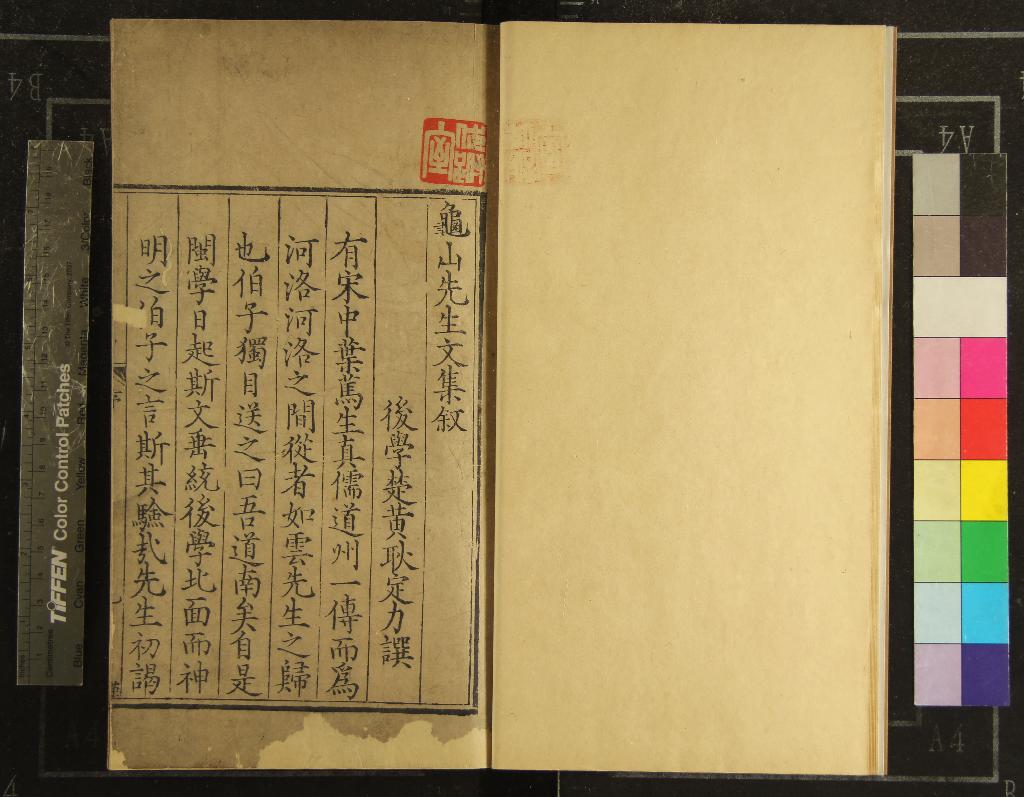 龜山先生文集叙
後學楚黃耿定力譔
有宋中葉篤生真儒道州一傳而爲
河洛河洛之間從者如雲先生之歸
也伯子獨目送之曰吾道南矣自是
閩學日起斯文垂統後學北面而神
明之伯子之言斯其驗㢤先生初謁
序
TIFFEN Color Control Patches
© The Tiffen Company, 2007
Inches
Centimetres
Blue
Cyan
Green
Yellow
Red
Magenta
White
3/Color
Black
B4
A4
A4
A4
A4